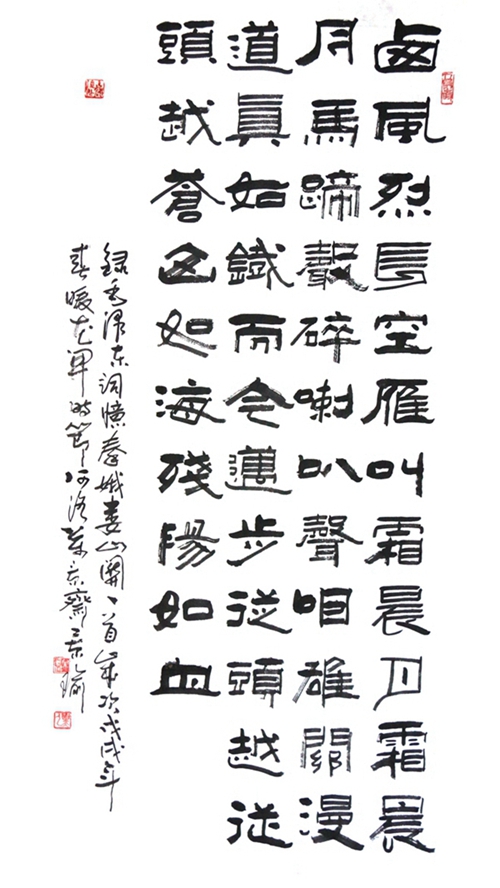 西風烈長空雁叫霜晨月霜晨
月馬蹄聲碎喇叭聲咽雄關漫
道真如鐵而今邁步從頭越從
頭越蒼山如海殘陽如血
錄毛澤東詞憶秦娥婁山關一首歲次戊戌年
春暖花開時節河洛齋景瑜